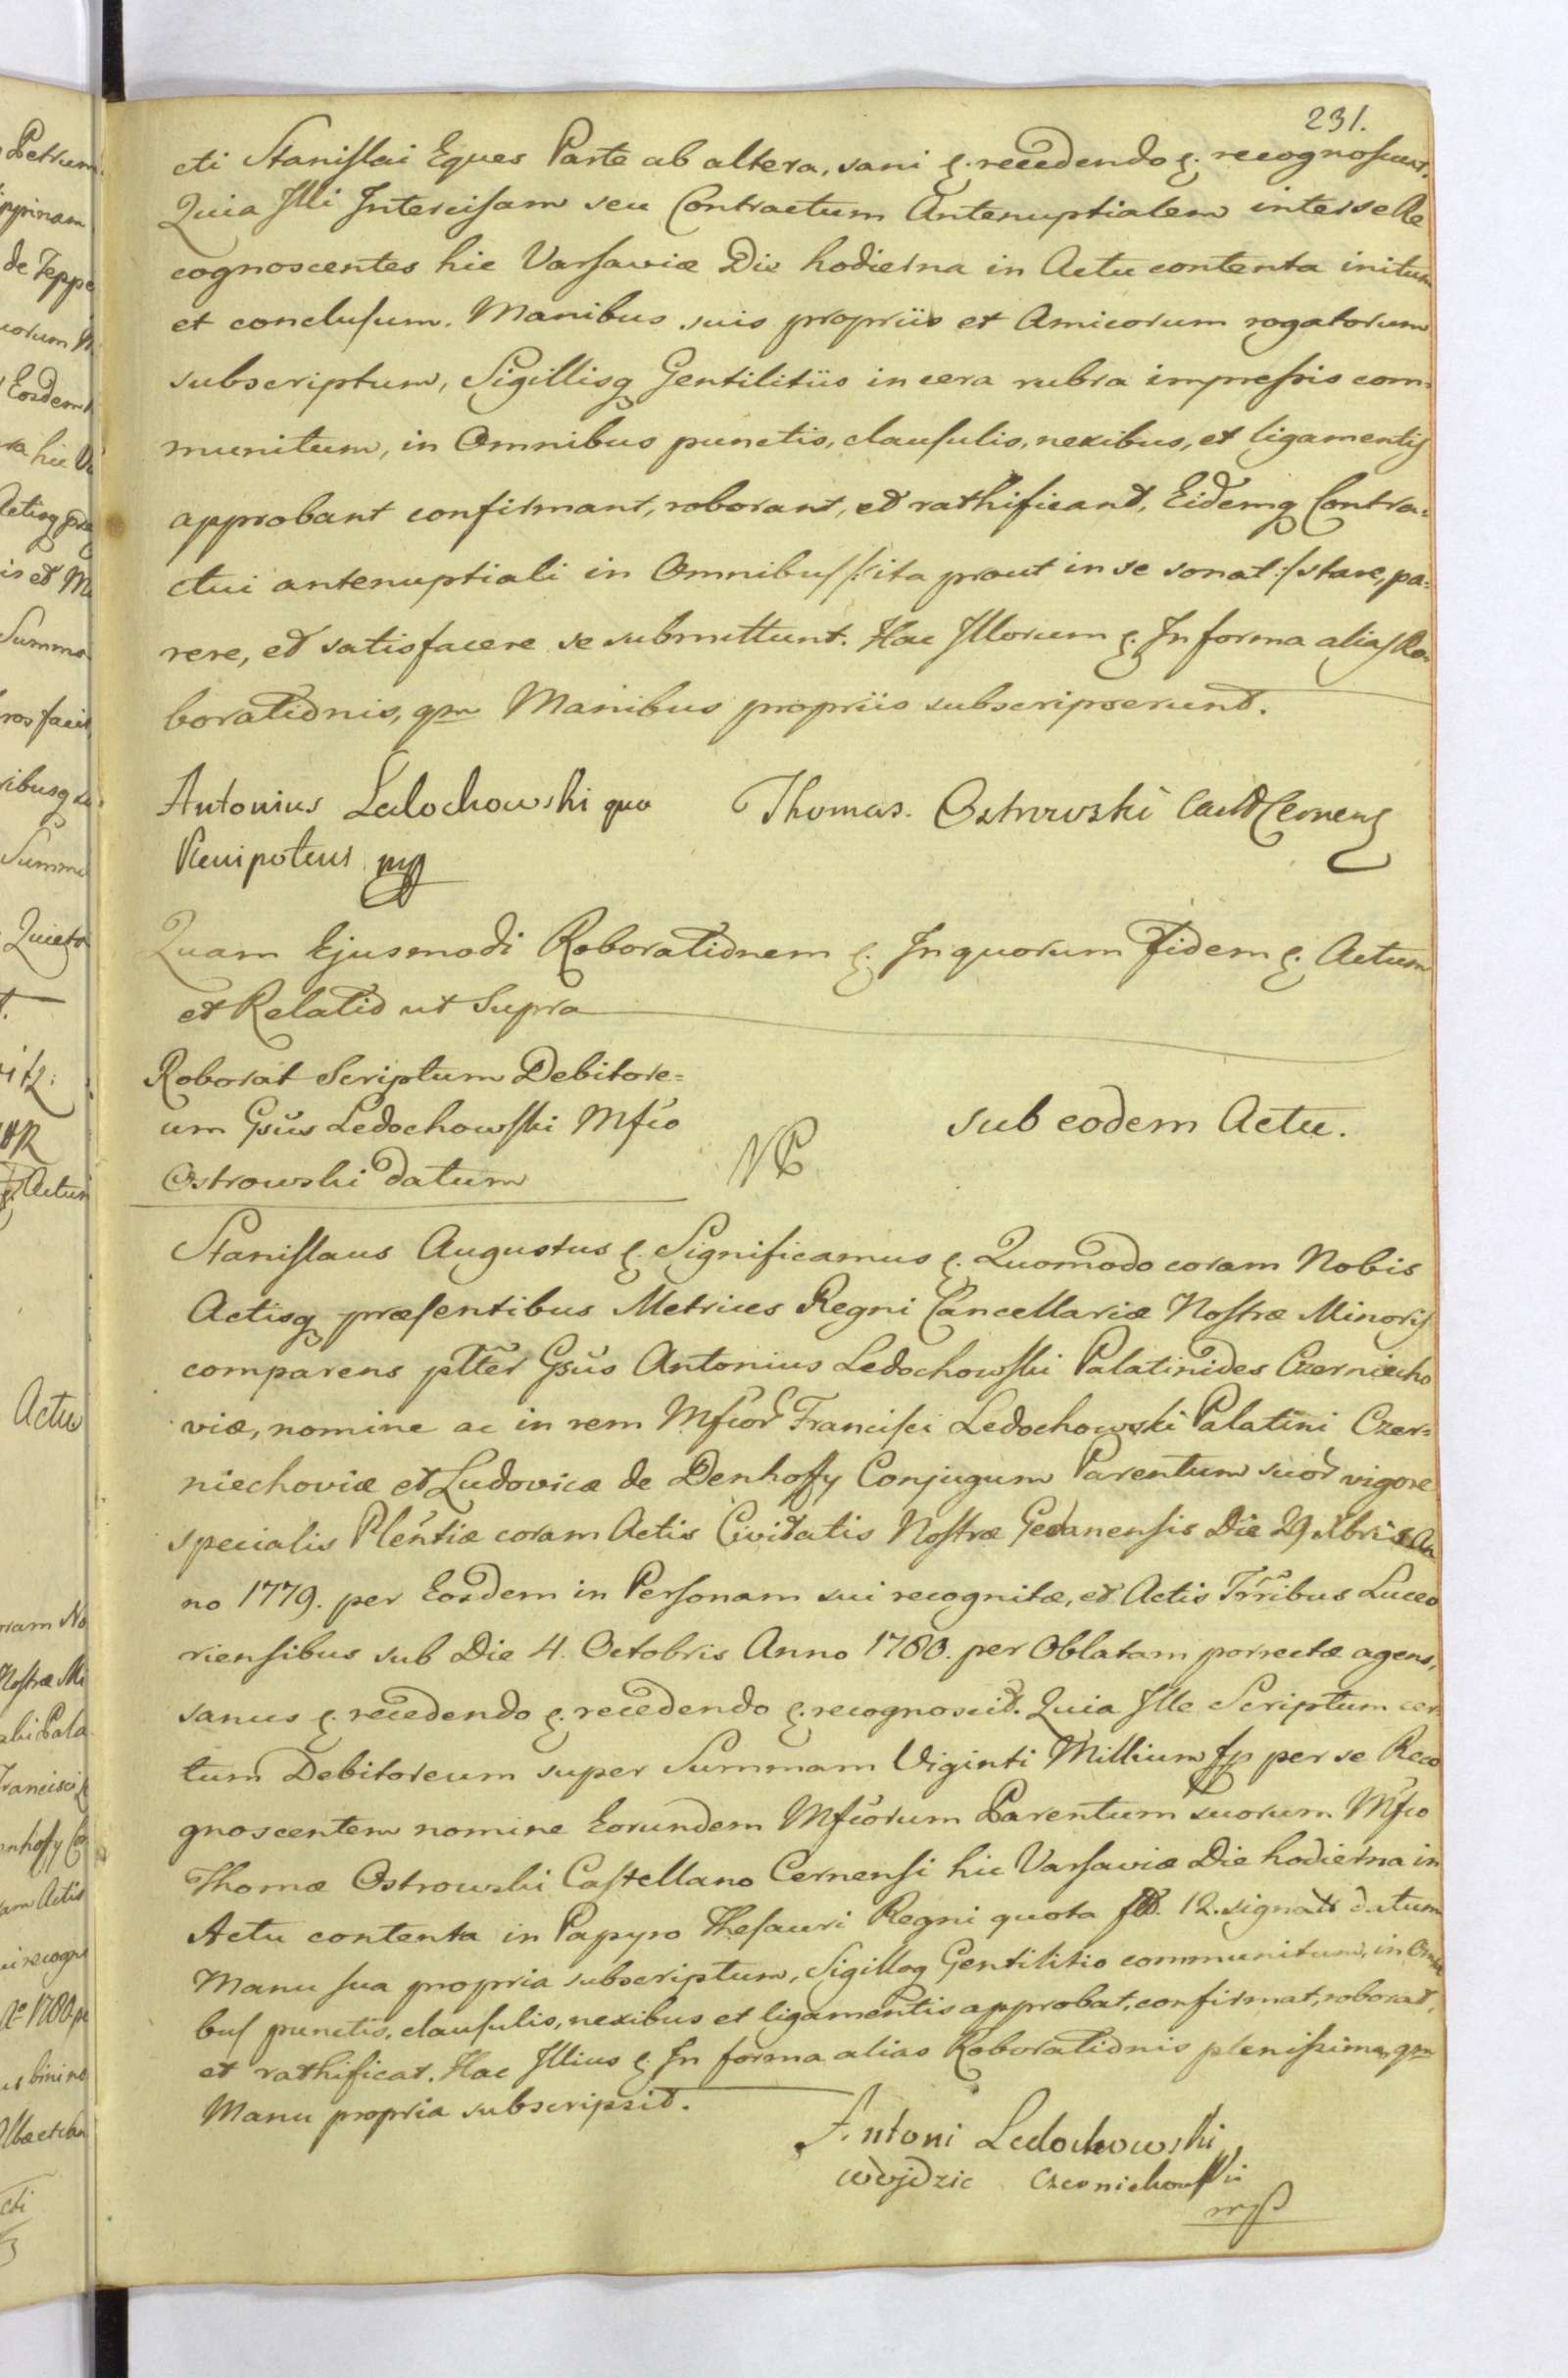 231.
cti Stanislai Eques Parte ab altera, sani &. recedendo &. recognoscunt.
Quia Illi Intercisam seu Contractum Antenuptialem inter se Re
cognoscentes hic Varsaviæ Die hodierna in Actu contenta initum
et conclusum. Manibus suis propriis et Amicorum rogatorum
subscriptum, Sigillisq Gentilitiis in cera rubra impressis com=
munitum, in Omnibus punctis, clausulis, nexibus, et ligamentis
approbant confirmant, roborant, et rathificant, Eidemq Contra=
ctui antenuptiali in Omnibus /:ita prout in se sonat:/ stare, pa=
rere, et satisfacere se submittunt. Hac Illorum &. In forma alias Ro=
borationis, qm Manibus propriis subscripserunt.
Antonius Ledochowski qua Thomas Ostrowski Cast Cernens
Plenipotens mp
Quam Ejusmodi Roborationem &. In quorum Fidem &. Actum
et Relatio ut Supra
Roborat Scriptum Debitore=
um Gsūs Ledochowski Mfco
Ostrowski datum
NP
sub eodem Actu.
Stanislaus Augustus &. Significamus &. Quomodo coram Nobis
Actisq præsentibus Metrices Regni Cancellariæ Nostræ Minoris
comparens pltter Gsūs Antonius Ledochowski Palatinides Czerniecho
viæ, nomine ac in rem Mfcor Francisci Ledochowski Palatini Czer=
niechoviæ et Ludovicæ de Denhoffy Conjugum Parentum suor vigore
specialis Plentiæ coram Actis Civitatis Nostræ Gedanensis Die 29 Xbris An
no 1779. per Eosdem in Personam sui recognitæ, et Actis Trribus Luceo
riensibus sub Die 4. Octobris Anno 1780. per Oblatam porrectæ agens,
sanus &. recedendo &. recedendo &. recognoscit. Quia Ille Scriptum cer
tum Debitoreum super Summam Viginti Millium fp per se Reco
gnoscentem nomine Eorundem Mfcorum Parentum suorum Mfco
Thomæ Ostrowski Castellano Cernensi hic Varsaviæ Die hodierna in
Actu contenta in Papyro Thesauri Regni quota 12. signato datum
Manu sua propria subscriptum, Sigilloq Gentilitio communitum, in Omni
bus punctis, clausulis, nexibus et ligamentis approbat, confirmat, roborat,
et rathificat. Hac Illius &. In forma alias Roborationis plenissima, qm
Manu propria subscripsit.
Antoni Ledochowski
wojdzic Czerniechowski
mp